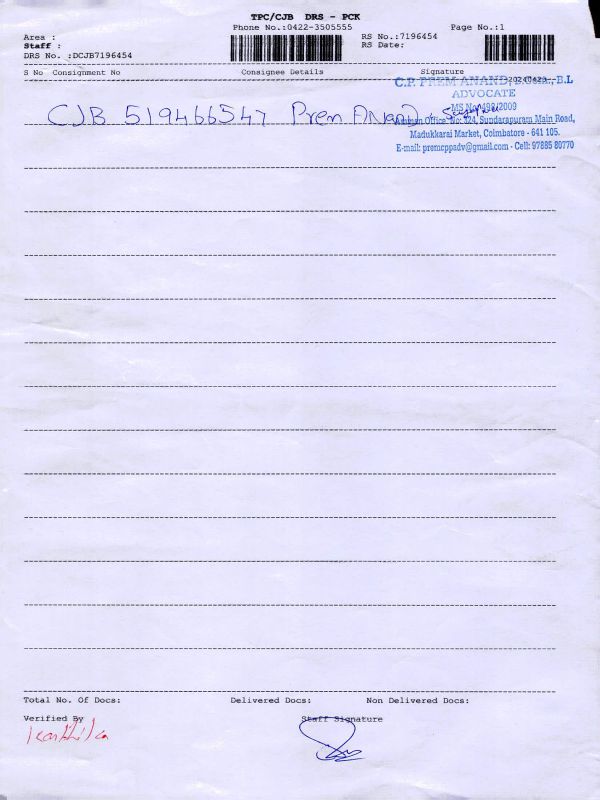 TPC/CJB DRS - PCK
Phone No.:0422-3505555
Page No.:1
Area :
Staff :
DRS No. :DCJB7196454
RS No.:7196454
RS Date:
S No Consignment No Consignee Details Signature
C.P. PREM ANAND, B.L
ADVOCATE
MS No 498/2009
CJB 519466547 Prem ANand
Office No: 324, Sundarapuram Main Road,
Madukkarai Market, Coimbatore - 641 105.
E-mail: premcppadv@gmail.com - Cell: 97885 80770
Total No. Of Docs: Delivered Docs: Non Delivered Docs:
Verified By Staff Signature